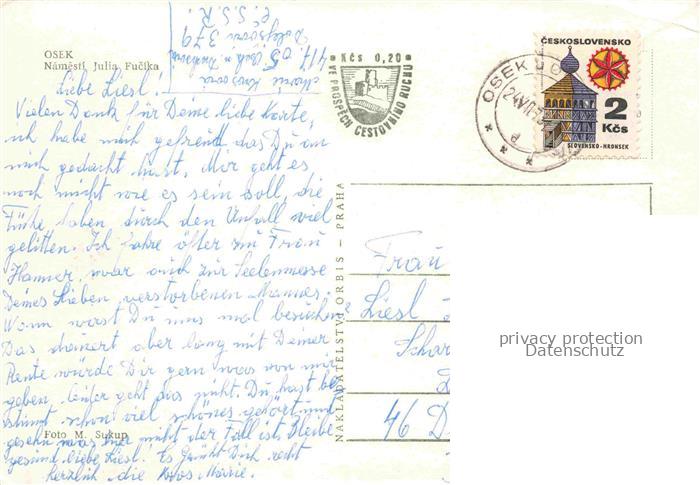 OSEK
Náměstí Julia Fučíka
Marie
417 05 Osek
379
Č.S.S.R.
Kčs 0,20
VE PROSPĚCH CESTOVNÍHO RUCHU
OSEK U
ČESKOSLOVENSKO
2
Kčs
SLOVENSKO-HRONSEK
Liebe Liesl!
Vielen Dank für Deine liebe Karte,
ich habe mich gefreut das Du an
mich gedacht hast, Mir geht es
noch nicht wie es sein soll, die
Füße haben durch den Unfall viel
gelitten. Ich fahre öfter zu Frau
Hanner, war auch zur Seelenmesse
Deines Lieben verstorbenen Mannes.
Wann wirst Du uns mal besuchen?
Das dauert aber lang mit Deiner
Rente würde Dir gern was von mir
geben, leider geht das nicht. Du hast be
stimmt schon viel schönes gehört und
gesehn was hier nicht der Fall ist. Bleibe
gesund liebe Liesl! Es Grüßt Dich recht
herzlich die Marie.
Foto M. Sukup
NAKLADATELSTVÍ ORBIS – PRAHA
Frau
Liesl
46 D
privacy protection
Datenschutz